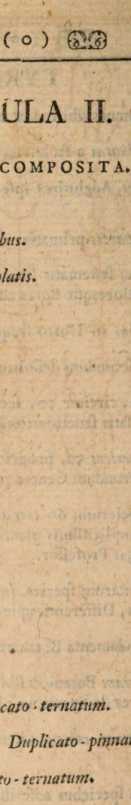 ( o )
ULA II.
COMPOSITA.
bus.
latis.
cato - ternatum.
Duplicato - pinna
to - ternatum.